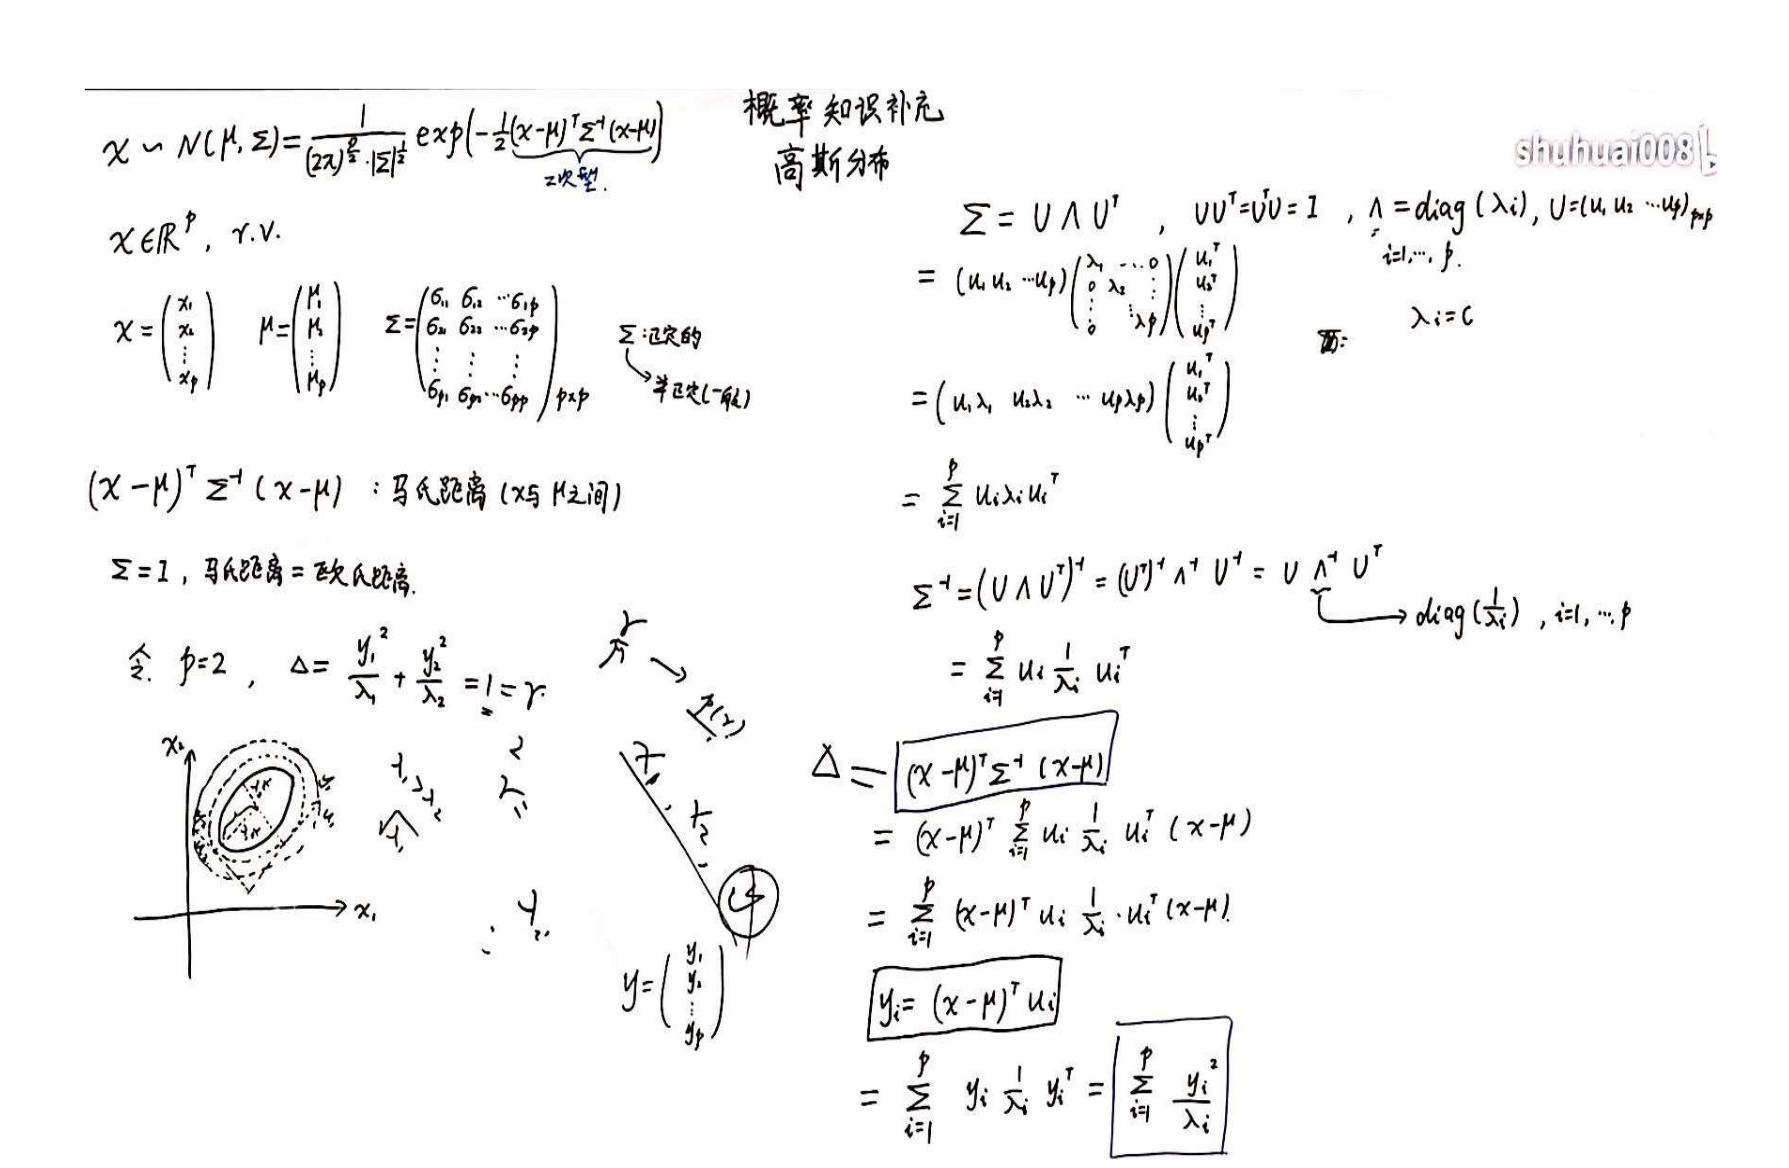 概率知识补充
高斯分布
shuhuai008
x ~ N(μ, Σ) = 1/((2π)^(p/2)·|Σ|^(1/2)) exp(-1/2 (x-μ)^T Σ^-1 (x-μ))
二次型.
x∈ℝ^p, r.v.
x = (x₁ x₂ ⋮ x_p) μ = (μ₁ μ₂ ⋮ μ_p) Σ = (σ₁₁ σ₁₂ ⋯ σ₁p; σ₂₁ σ₂₂ ⋯ σ₂p; ⋮ ⋮ ⋮; σp₁ σp₂ ⋯ σpp) p×p
Σ:正定的
半正定(一般)
(x-μ)^T Σ^-1 (x-μ) : 马氏距离 (x与μ之间)
Σ=I, 马氏距离=欧氏距离.
令 p=2, Δ = y₁²/λ₁ + y₂²/λ₂ = 1 = r.
r
p(r)
x₂
x₁
y = (y₁ y₂ ⋮ y_p)
Σ = U Λ U^T, UU^T=U^TU=I, Λ=diag(λi), U=(u₁ u₂ ⋯ u_p)p×p
i=1,⋯, p.
= (u₁ u₂ ⋯ u_p) (λ₁ ⋯ 0; 0 λ₂ ⋮; ⋮; 0 ⋮ λp) (u₁^T u₂^T ⋮ u_p^T)
λi = C
= (u₁λ₁ u₂λ₂ ⋯ u_pλ_p) (u₁^T u₂^T ⋮ u_p^T)
= Σ_{i=1}^p ui λi ui^T
Σ^-1 = (UΛU^T)^-1 = (U^T)^-1 Λ^-1 U^-1 = U Λ^-1 U^T
diag(1/λi), i=1, ⋯, p
= Σ_{i=1}^p ui 1/λi ui^T
Δ = (x-μ)^T Σ^-1 (x-μ)
= (x-μ)^T Σ_{i=1}^p ui 1/λi ui^T (x-μ)
= Σ_{i=1}^p (x-μ)^T ui 1/λi · ui^T (x-μ).
yi = (x-μ)^T ui
= Σ_{i=1}^p yi 1/λi yi^T = Σ_{i=1}^p yi²/λi